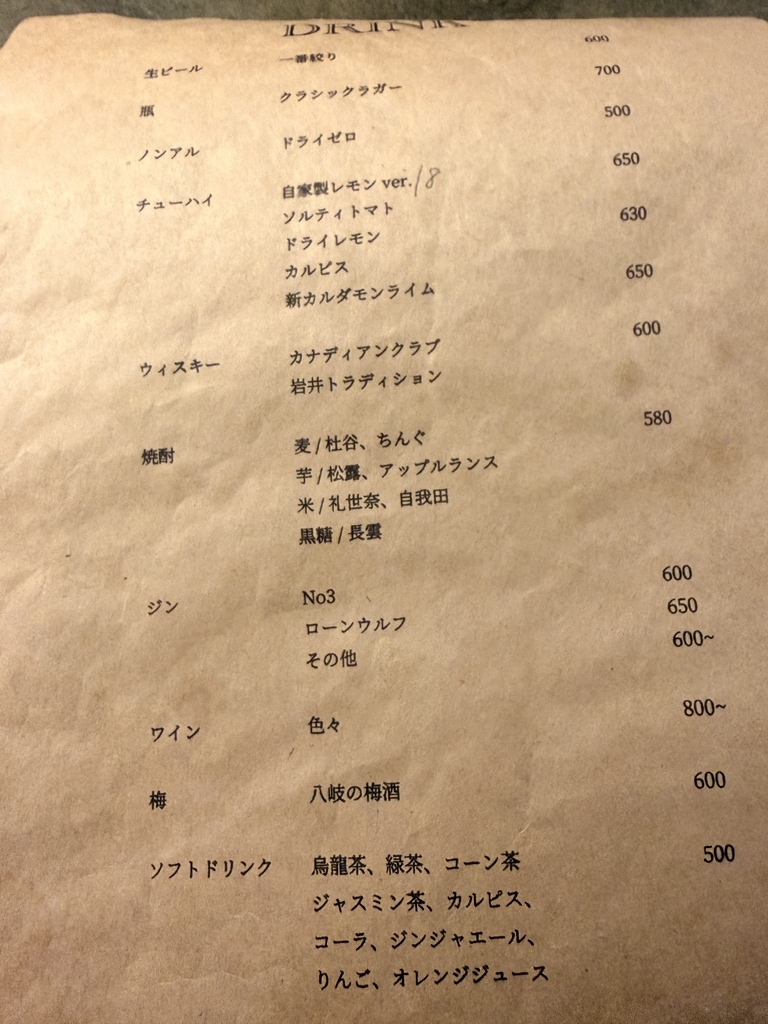 DRINK
生ビール 一番絞り 600
瓶 クラシックラガー 700
ノンアル ドライゼロ 500
チューハイ 自家製レモン ver.18 650
ソルティトマト
ドライレモン 630
カルピス
新カルダモンライム 650
ウィスキー カナディアンクラブ 600
岩井トラディション
焼酎 麦 / 杜谷、ちんぐ 580
芋 / 松露、アップルランス
米 / 礼世奈、自我田
黒糖 / 長雲
ジン No3 600
ローンウルフ 650
その他 600~
ワイン 色々 800~
梅 八岐の梅酒 600
ソフトドリンク 烏龍茶、緑茶、コーン茶 500
ジャスミン茶、カルピス、
コーラ、ジンジャエール、
りんご、オレンジジュース